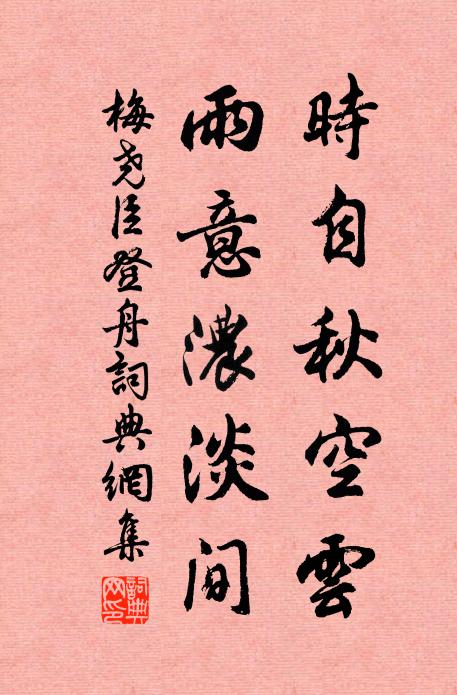 時自秋空雲
雨意濃淡間
梅尧臣登舟詞典網集
詞典網印